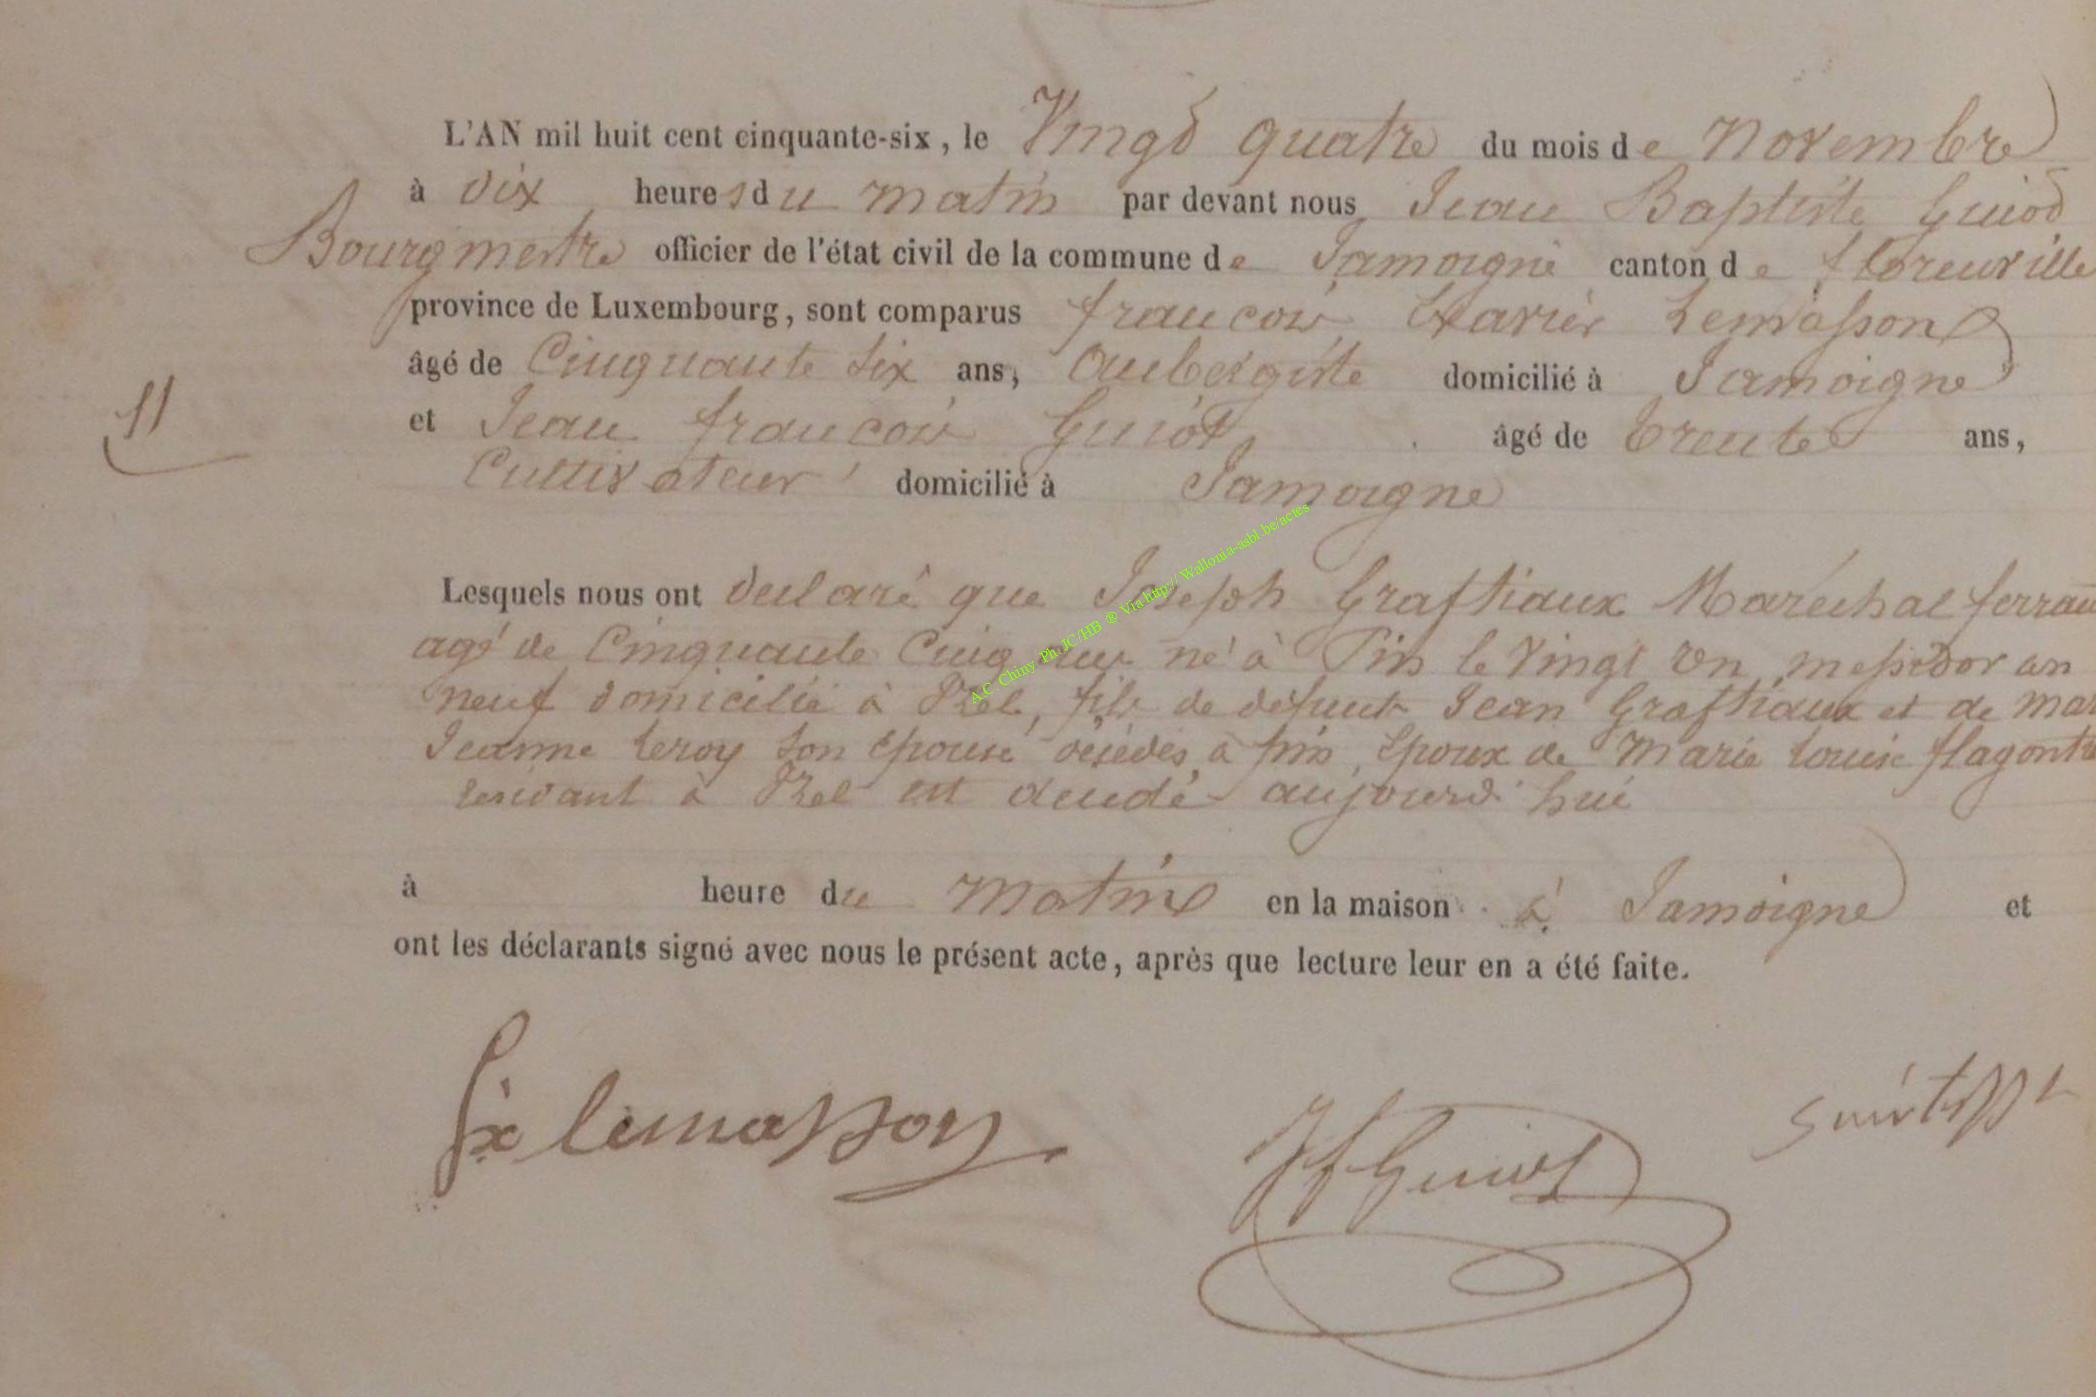 L'AN mil huit cent cinquante-six, le Vingt quatre du mois de Novembre
à dix heures du matin par devant nous Jean Baptiste Guiot
Bourgmestre officier de l'état civil de la commune de Jamoigne canton de florenville
province de Luxembourg, sont comparus francois Xavier Lemasson
âgé de Cinquante Six ans, Aubergiste domicilié à Jamoigne
11
et Jean francois Guiot âgé de trente ans,
Cultivateur domicilié à Jamoigne
Lesquels nous ont declaré que Joseph Graftiaux Maréchal ferrant
agé de Cinquante Cinq ans né à Pin le vingt un messidor an
neuf domicilié à Izel, fils de defunts Jean Graftiaux et de mar
Jeanne leroy son épouse décédés à pin, époux de Marie louise flagontie
residant à Izel est decédé aujourd'hui
à heure du matin en la maison à Jamoigne et
ont les déclarants signé avec nous le présent acte, après que lecture leur en a été faite.
fx lemasson
Jf Guiot
A.C Chiny Ph JC/HB ® Via http://Wallonia-asbl.be/actes